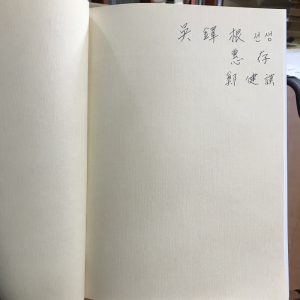 吳鐸根 선생
惠存
鄭健謨